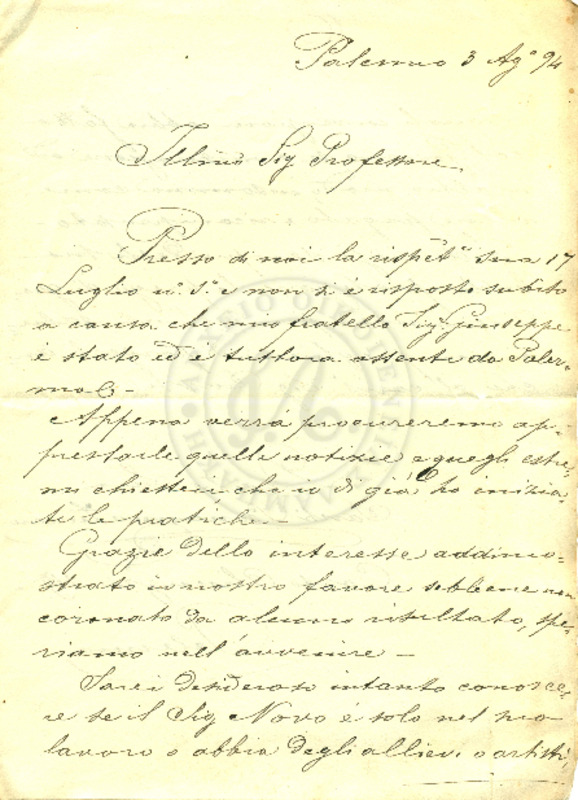 Palermo 3 Ag.º 94
Illmo Sig Professore
Presso di noi la rispēt.ª sua 17
Luglio u.º s.º e non si è risposto subito
a causa che mio fratello Sig.r Giuseppe
è stato ed è tuttora assente da Paler=
mo –
Appena verrà procureremo ap=
prestarle quelle notizie e quegli estre=
mi chiesteci, che io di già ho inizia=
te le pratiche –
Grazie dello interesse addimo=
strato in nostro favore sebbene non
coronato da alcuno risultato, spe=
riamo nell'avvenire –
Sarei desideroso intanto conosce=
re se il Sig Novo è solo nel suo
lavoro o abbia degli allievi o artisti